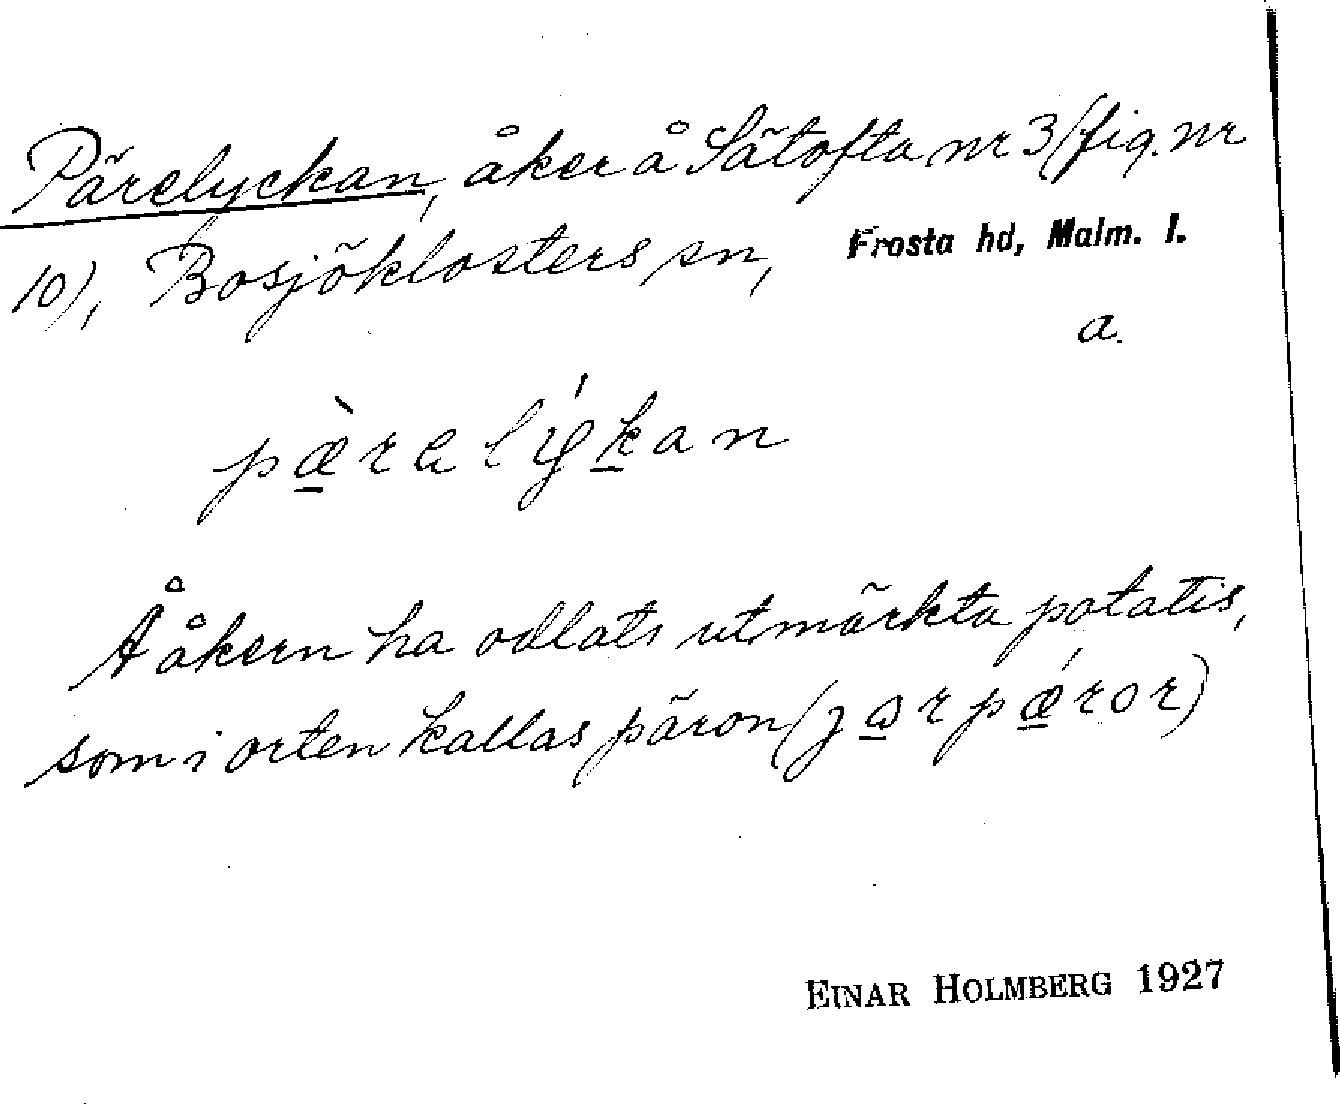 Pärelyckan, åker å Sätofta nr 3 (fig. nr
10), Bosjöklosters sn, Frosta hd, Malm. l.
a.
pæ̀ralýkan
Å åkern ha odlats utmärkta potatis,
som i orten kallas päron (jarpǽror)
EINAR HOLMBERG 1927